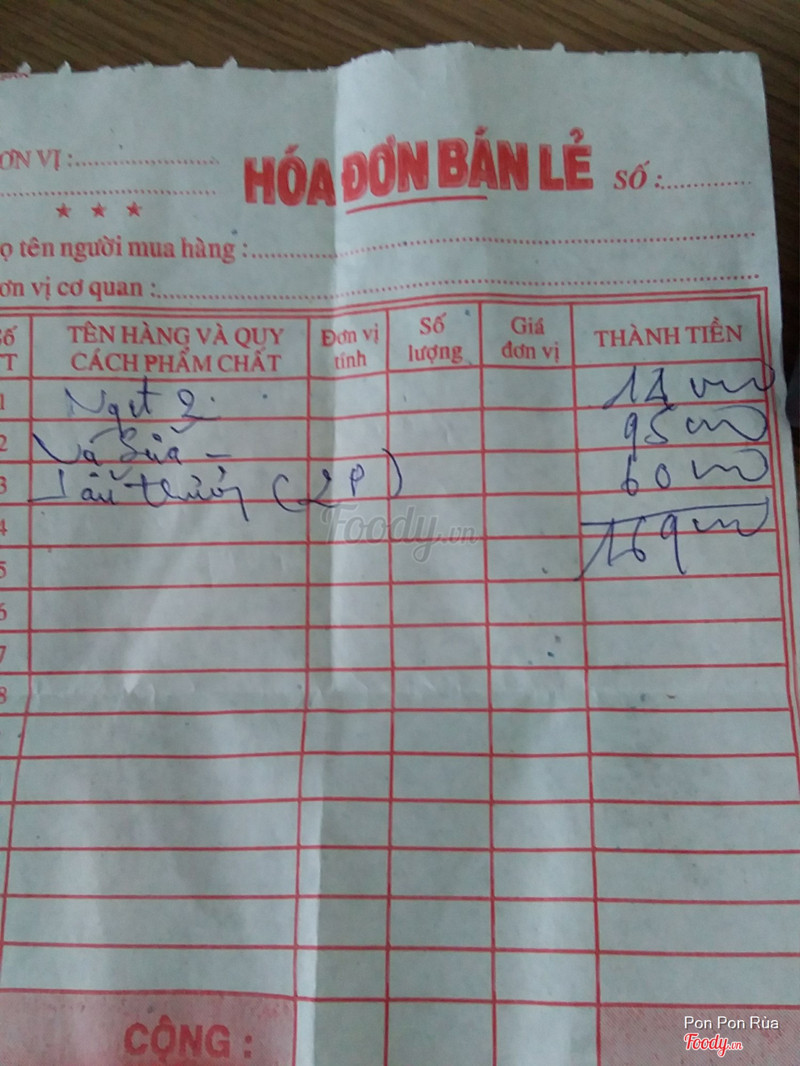 ƠN VỊ :
HÓA ĐƠN BÁN LẺ
SỐ :
★ ★ ★
ọ tên người mua hàng :
ơn vị cơ quan :
Số
TT
TÊN HÀNG VÀ QUY CÁCH PHẨM CHẤT
Đơn vị tính
Số lượng
Giá đơn vị
THÀNH TIỀN
1 Ngọt 2 14
2 Vú Sữa 95
3 (2P) 60
4 169
5
6
7
8
Foody.vn
CỘNG :
Pon Pon Rùa
Foody.vn